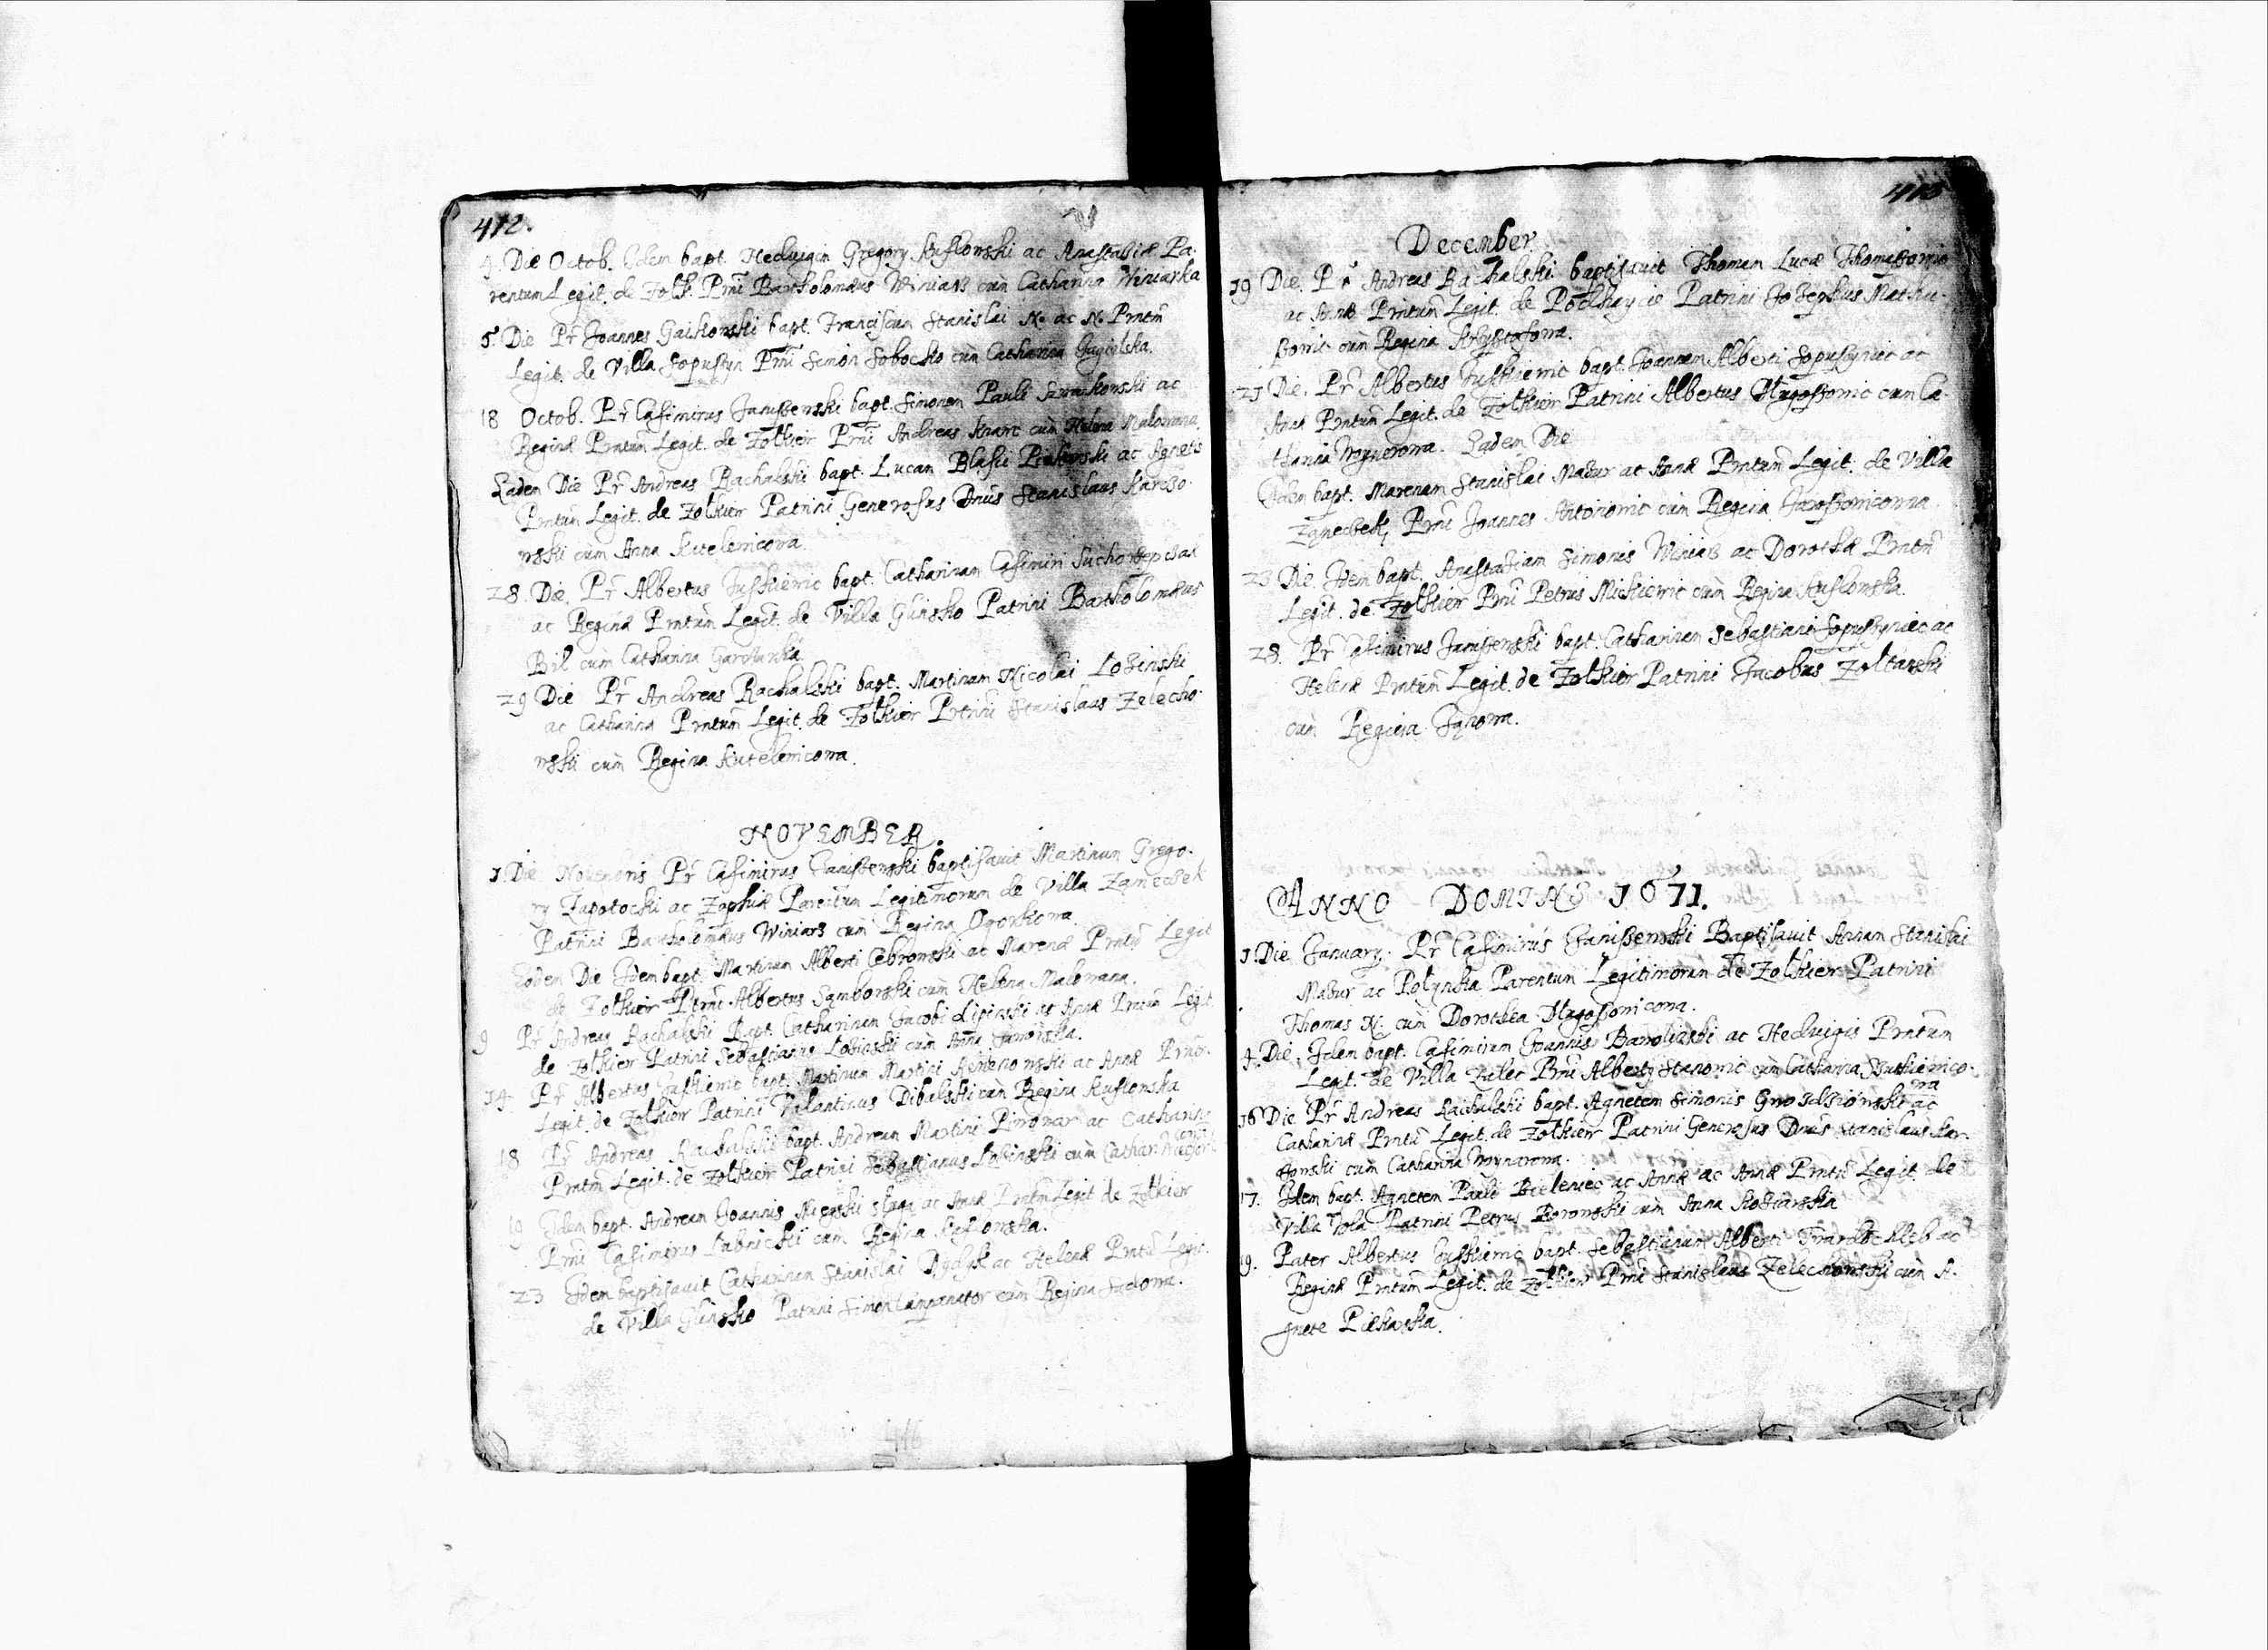 412.
4. Die Octob. Idem bapt. Hedvigin Gregory Kuslowski ac Anastasiæ Pa-
rentum Legit. de Zolk. Prni Bartholomæus Winiars cum Catharina Winiarka
5. Die Pr Joannes Gaikowski bapt. Franciscum Stanislai N. ac N. Prntm
Legit. de Villa Sopuszyn Prni Simon Sobocko cum Catharina Gagielska.
18 Octob. Pr Casimirus Janiszewski bapt. Simonem Pauli ac
Reginæ Prntum Legit. de Zolkiew Prni Andreas Knap cum Helena Malowana
Eadem Die Pr Andreas Rachalski bapt. Lucam Blasii Piekarski ac Agnetis
Prntum Legit. de Zolkiew Patrini Generosus Dnus Stanislaus Karczo-
wski cum Anna Kutelewicowa.
28. Die. Pr Albertus Juszkiewic bapt. Catharinam Casimiri
ac Reginæ Prntum Legit. de Villa Glinsko Patrini Bartholomæus
Bil cum Catharina Garczarka
29 Die Pr Andreas Rachalski bapt. Martinum Nicolai Lozinski
ac Catharina Prntum Legit. de Zolkiew Prtrini Stanislaus Zelecho-
wski cum Regina Kutelewicowa.
NOVEMBER.
1. Die Novembris Pr Casimirus Janiszewski baptisavit Martinum Grego-
ry Zapotocki ac Zophiæ Parentum Legitimorum de Villa Zameczek
Patrini Bartholomæus Winiars cum Regina Ogorkowa.
Eodem Die Idem bapt. Martinum Alberti Cebrowski ac Marenæ Prntum Legit
de Zolkiew Prni Albertus Samborski cum Helena Malowana.
9 Pr Andreas Rachalski Bapt. Catharinam Jacobi Lipinski ac Annæ Prntum Legit.
de Zolkiew Patrini Sebastianus Lozinski cum Anna Jaworska.
14. Pr Albertus Juszkiewic bapt. Martinum Martini ac Annæ Prntm
Legit. de Zolkiew Patrini Valantinus Dibalski cum Regina Kuslowska
18 Pr Andreas Rachalski bapt. Andream Martini Piwowar ac Catharinæ
Prntm Legit. de Zolkiew Patrini Sebastianus Lozinski cum Cathar.
19 Idem bapt. Andream Joannis ac Annæ Prntm Legit de Zolkiew
Prni Casimirus Labnicki cum Regina Kuslowska.
23 Idem baptisavit Catharinam Stanislai Dydyk ac Helenæ Prntum Legit.
de Villa Glinsko Patrini Simon Campanator cum Regina
413
December
19 Die. Pr Andreas Rachalski baptisavit Thomam Lucæ Thomaszowic
ac Annæ Prntum Legit. de Podhaycie Patrini Josephus Mathu-
szowic cum Regina Krzysztofowa.
21 Die. Pr Albertus Juszkiewic bapt. Joannem Alberti Sopuszyniec ac
Annæ Prntum Legit. de Zolkiew Patrini Albertus Dlugoszowic cum Ca-
tharina Waynerowa. Eadem Die
Idem bapt. Marenam Stanislai Mazur ac Annæ Prntum Legit. de Villa
Zameczek, Prni Joannes Antoniowic cum Regina
23 Die Idem bapt. Anastasiam Simonis Winiars ac Dorothæ Prntm
Legit. de Zolkiew Prni Petrus Mickiewic cum Regina Kuslowska.
28. Pr Casimirus Janiszewski bapt. Catharinam Sebastiani Sopuszyniec ac
Helenæ Prntum Legit. de Zolkiew Patrini Jacobus Zoltanski
cum Regina
ANNO DOMINI 1671.
1. Die January. Pr Casimirus Janiszewski Baptisavit Annam Stanislai
Mazur ac Polynska Parentum Legitimorum de Zolkiew Patrini
Thomas N. cum Dorothea Dlugoszowicowa.
4. Die. Idem bapt. Casimirum Joannis ac Hedvigis Prntum
Legit. de Villa Prni Alberty Stanowic cum Catharina Juszkiewico-
wa
16 Die Pr Andreas Rachalski bapt. Agnetem Simonis Gwozdziowski ac
Catharinæ Prntum Legit. de Zolkiew Patrini Generosus Dnus Stanislaus Kar-
czowski cum Catharina
17. Idem bapt. Agnetem Pauli Bieleniec ac Annæ ac Annæ Prntum Legit. de
Villa Vola Patrini Petrus Borowski cum Anna
19. Pater Albertus Juszkiewic bapt. Sebastianum Alberti Twardochleb ac
Reginæ Prntum Legit. de Zolkiew Prni Stanislaus Zelechowski cum A-
gnete Piekarska.